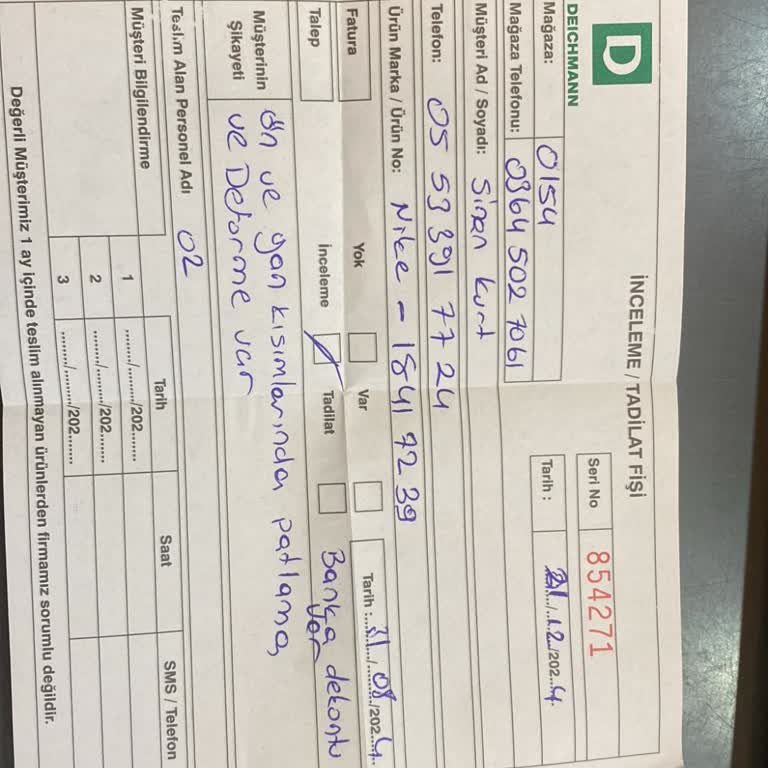 D
DEICHMANN
İNCELEME / TADİLAT FİŞİ
Seri No 854271
Mağaza: 0154
Tarih : 21/12/2024
Mağaza Telefonu: 0364 502 7061
Müşteri Ad / Soyadı: Sinan Kurt
Telefon: 05 53 391 77 24
Ürün Marka / Ürün No: Nike - 1841 72 39
Fatura Yok Var Tarih : 31/08/2024
Talep İnceleme Tadilat Banka dekontu var
Müşterinin Şikayeti
ön ve yan kısımlarında patlama,
ve Deforme var
Teslim Alan Personel Adı 02
Müşteri Bilgilendirme
Tarih Saat SMS / Telefon
1 ......../........./202........
2 ......../........./202........
3 ......../........./202........
Değerli Müşterimiz 1 ay içinde teslim alınmayan ürünlerden firmamız sorumlu değildir.